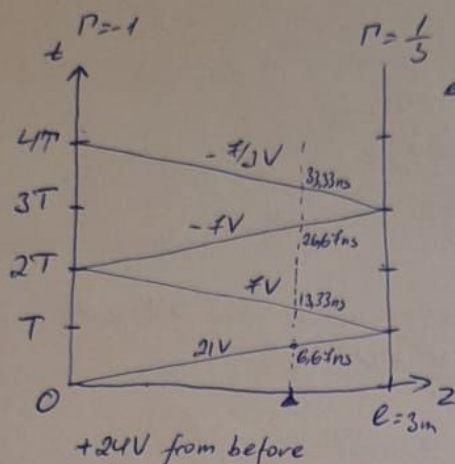 Γ=-1
Γ=1/3
t
4T
-7/3V
33,33ns
3T
-7V
26,67ns
2T
7V
13,33ns
T
21V
6,67ns
0
z
l=3m
+24V from before